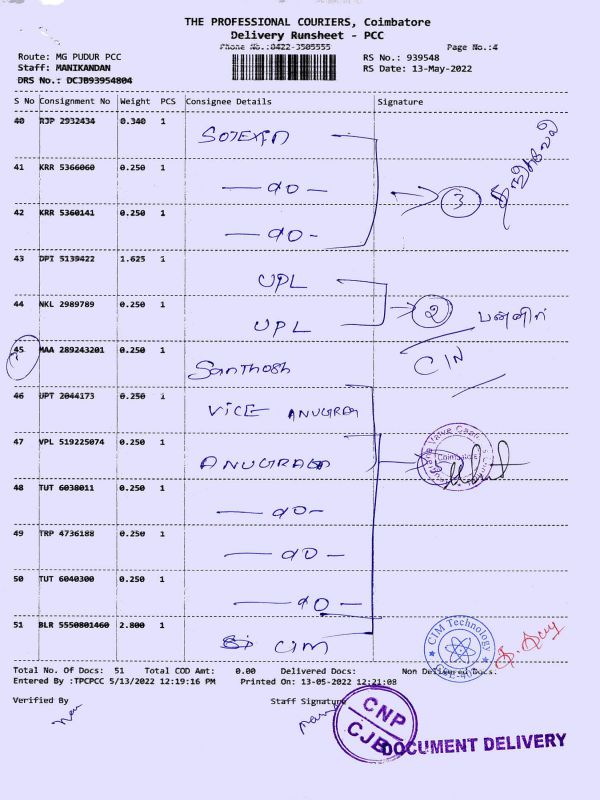 THE PROFESSIONAL COURIERS, Coimbatore
Delivery Runsheet - PCC
Phone No.:0422-3505555 Page No.:4
Route: MG PUDUR PCC RS No.: 939548
Staff: MANIKANDAN RS Date: 13-May-2022
DRS No.: DCJB93954804
S No Consignment No Weight PCS Consignee Details Signature
40 RJP 2932434 0.340 1
41 KRR 5366060 0.250 1 — do —
3
42 KRR 5360141 0.250 1 — do -
43 DPI 5139422 1.625 1 UPL
44 NKL 2989789 0.250 1 UPL 2 பன்னீர்
45 MAA 289243201 0.250 1 Santhosh
46 UPT 2044173 0.250 1 VICE
47 VPL 519225074 0.250 1 Coimbatore
48 TUT 6038011 0.250 1 — do —
49 TRP 4736188 0.250 1 — do —
50 TUT 6040300 0.250 1 — do —
51 BLR 5550801460 2.800 1 CIM
CIM Technology
Total No. Of Docs: 51 Total COD Amt: 0.00 Delivered Docs: Non Delivered Docs:
Entered By :TPCPCC 5/13/2022 12:19:16 PM Printed On: 13-05-2022 12:21:08
Verified By Staff Signature
CNP
CJB
DOCUMENT DELIVERY